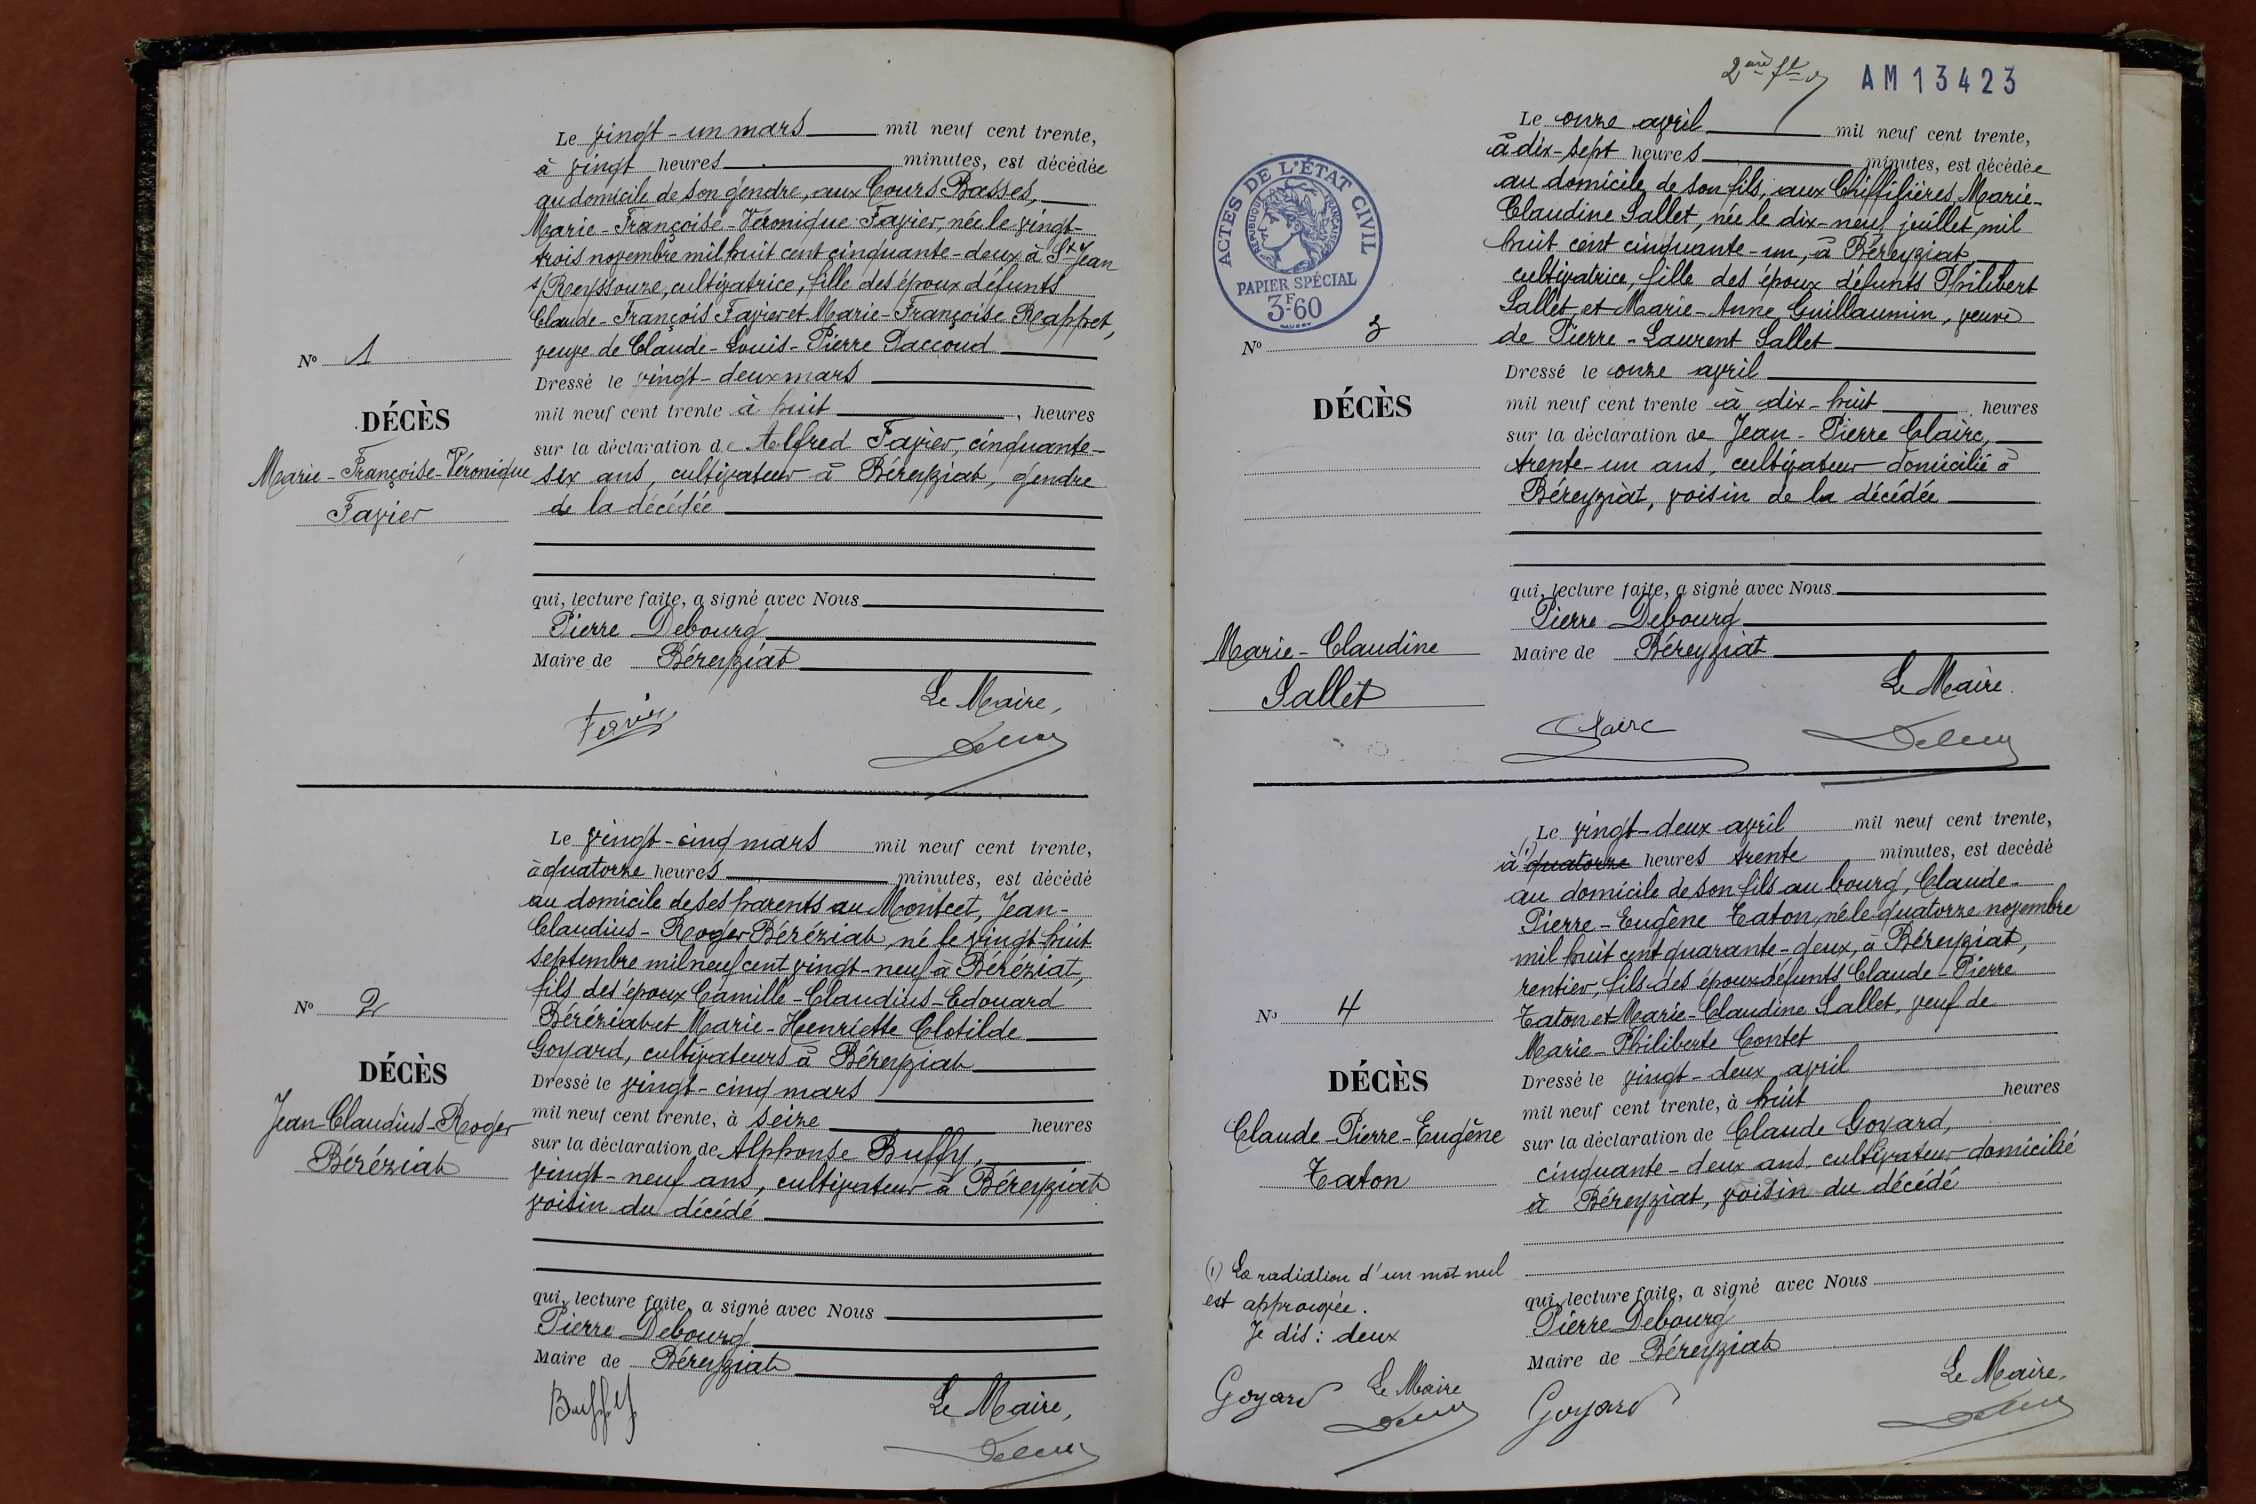 Le vingt-un mars mil neuf cent trente,
à vingt heures minutes, est décédée
au domicile de son gendre, aux Cours Basses,
Marie-Françoise-Véronique Favier, née le vingt-
trois novembre mil huit cent cinquante-deux à St Jean
s/Reyssouze, cultivatrice, fille des époux défunts
Claude-François Favier et Marie-Françoise Rappet,
veuve de Claude-Louis-Pierre Paccoud
Dressé le vingt-deux mars
mil neuf cent trente à huit heures
sur la déclaration de Alfred Favier, cinquante-
six ans, cultivateur à Béreyziat, gendre
de la décédée
qui, lecture faite, a signé avec Nous
Pierre Debourg
Maire de Béreyziat
Le Maire,
Favier
No 1
DÉCÈS
Marie-Françoise-Véronique
Favier
Le vingt-cinq mars mil neuf cent trente,
à quatorze heures minutes, est décédé
au domicile de ses parents au Montcet, Jean-
Claudius-Roger Béréziat, né le vingt-huit
septembre mil neuf cent vingt-neuf à Béréziat,
fils des époux Camille-Claudius-Edouard
Béréziat et Marie-Henriette Clotilde
Goyard, cultivateurs à Béreyziat
Dressé le vingt-cinq mars
mil neuf cent trente, à seize heures
sur la déclaration de Alphonse Buffy,
vingt-neuf ans, cultivateur à Béreyziat
voisin du décédé
qui, lecture faite, a signé avec Nous
Pierre Debourg
Maire de Béreyziat
Le Maire,
Buffy
No 2
DÉCÈS
Jean-Claudius-Roger
Béréziat
AM 13423
ACTES DE L'ÉTAT CIVIL
RÉPUBLIQUE FRANÇAISE
PAPIER SPÉCIAL
3F60
Le onze avril mil neuf cent trente,
à dix-sept heures minutes, est décédée
au domicile de son fils, aux Chiffilières, Marie-
Claudine Sallet, née le dix-neuf juillet mil
huit cent cinquante-un, à Béreyziat
cultivatrice, fille des époux défunts Philibert
Sallet et Marie-Anne Guillaumin, veuve
de Pierre-Laurent Sallet
Dressé le onze avril
mil neuf cent trente à dix-huit heures
sur la déclaration de Jean-Pierre Claire,
trente-un ans, cultivateur domicilié à
Béreyziat, voisin de la décédée
qui, lecture faite, a signé avec Nous
Pierre Debourg
Maire de Béreyziat
Le Maire.
Claire
No 3
DÉCÈS
Marie-Claudine
Sallet
Le vingt-deux avril mil neuf cent trente,
à (1) quatorze heures trente minutes, est decédé
au domicile de son fils au bourg, Claude-
Pierre-Eugène Taton, né le quatorze novembre
mil huit cent quarante-deux, à Béreyziat,
rentier, fils des époux défunts Claude-Pierre
Taton et Marie-Claudine Sallet, veuf de
Marie-Philiberte Contet
Dressé le vingt-deux avril
mil neuf cent trente, à huit heures
sur la déclaration de Claude Goyard,
cinquante-deux ans, cultivateur domicilié
à Béreyziat, voisin du décédé
qui, lecture faite, a signé avec Nous
Pierre Debourg
Maire de Béreyziat
Le Maire,
Goyard
No 4
DÉCÈS
Claude-Pierre-Eugène
Taton
(1) La radiation d'un mot nul
est approuvée.
Je dis: deux
Goyard Le Maire